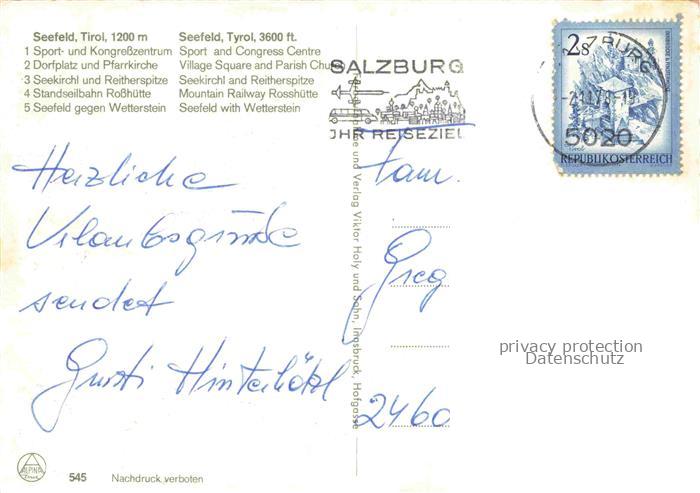 Seefeld, Tirol, 1200 m
1 Sport- und Kongreßzentrum
2 Dorfplatz und Pfarrkirche
3 Seekirchl und Reitherspitze
4 Standseilbahn Roßhütte
5 Seefeld gegen Wetterstein
Seefeld, Tyrol, 3600 ft.
Sport and Congress Centre
Village Square and Parish Church
Seekirchl and Reitherspitze
Mountain Railway Rosshütte
Seefeld with Wetterstein
SALZBURG
IHR REISEZIEL
2s
SALZBURG
5020
REPUBLIK ÖSTERREICH
Herzliche
Urlaubsgrüße
sendet
Gusti Hinterhölzl
und Verlag Viktor Holy und Sohn, Innsbruck, Hofgasse
Fam.
Greg
2460
privacy protection
Datenschutz
ALPINA
545 Nachdruck verboten